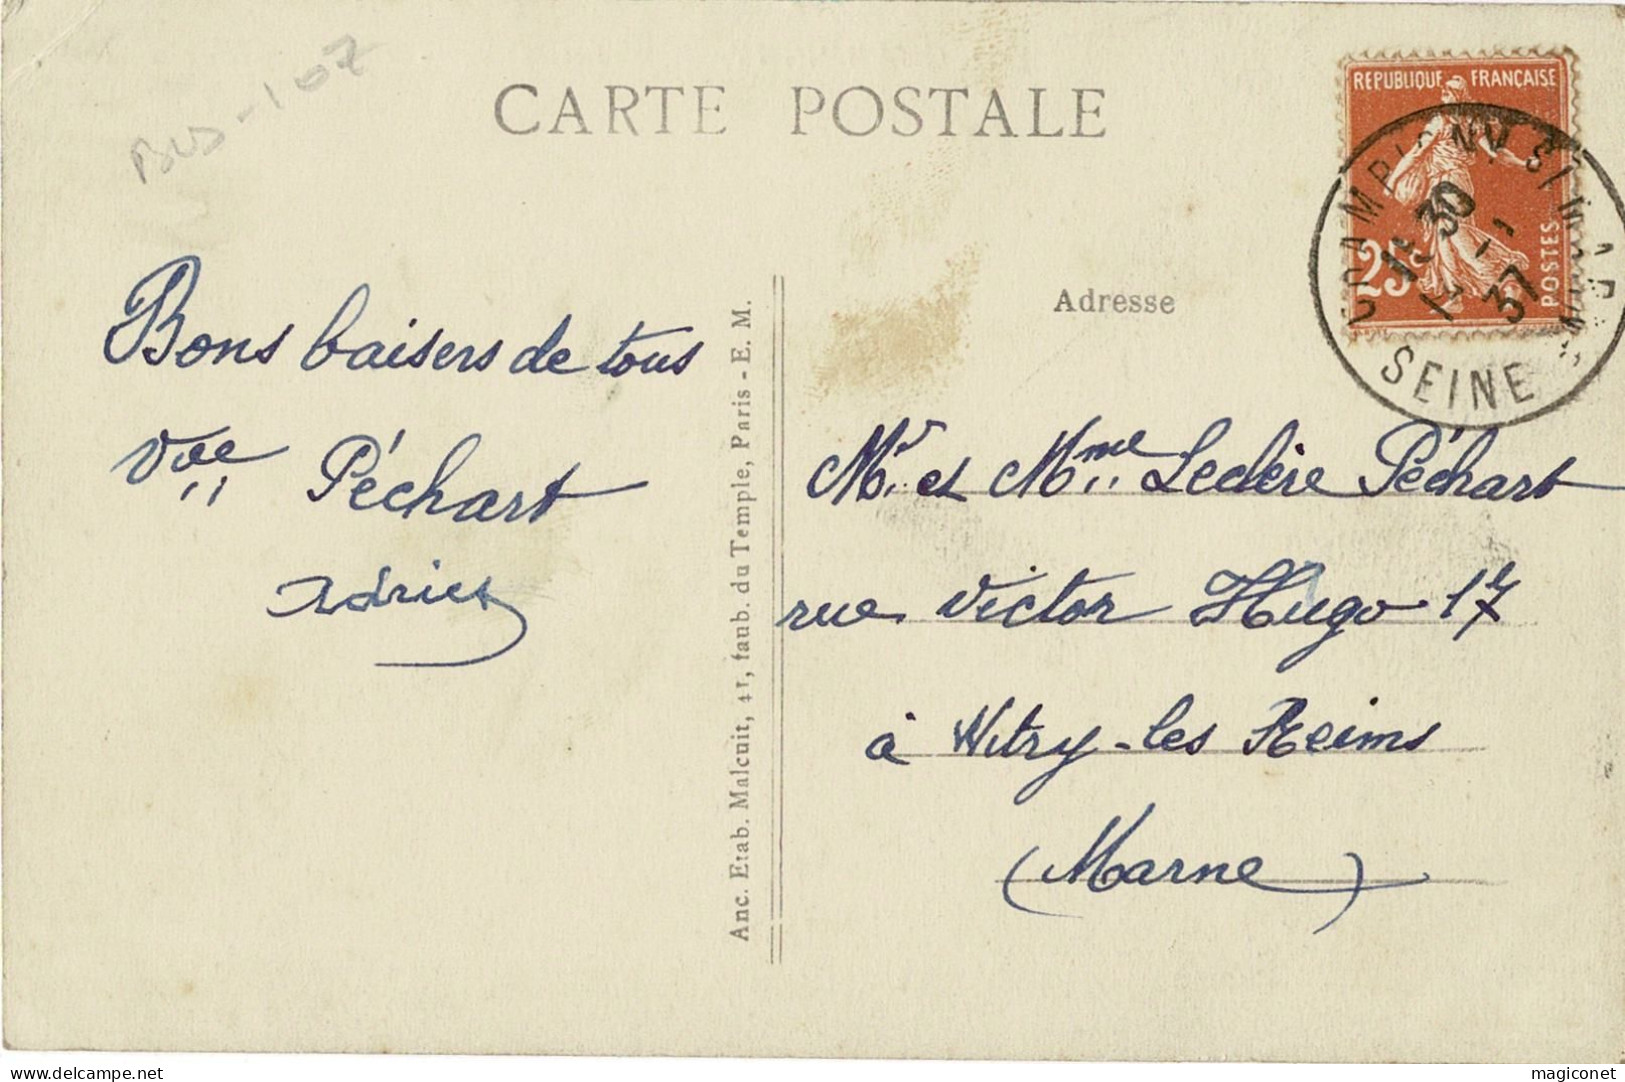 BUS-107
CARTE POSTALE
REPUBLIQUE FRANÇAISE
25c
POSTES
CHAMPIGNY S/ MARNE
15 30
37
SEINE
Adresse
Bons baisers de tous
Vve Péchart
Anc. Etab. Malcuit, 41, faub. du Temple, Paris - E. M.
Mr. et Mme Leclère Péchart
rue Victor Hugo 17
à Witry-les Reims
(Marne)
magiconet